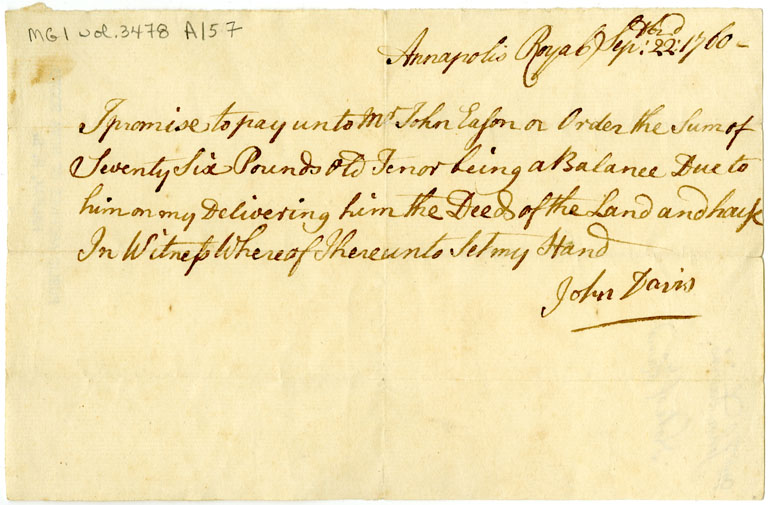 MG1 vol. 3478 A/57
Annapolis Royal Sepr: 22nd: 1760 –
I promise to pay unto Mr John Eason or Order the Sum of
Seventy Six Pounds Old Tenor being a Balance Due to
him on my Delivering him the Deeds of the Land and house
In Witness Whereof I hereunto Set my Hand
John Davis